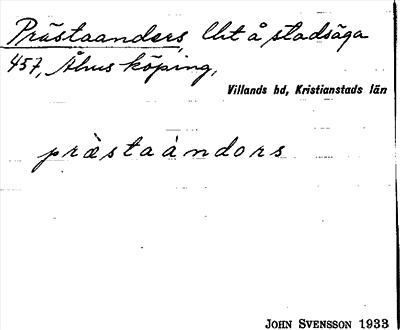 Prästaanders, lht å stadsäga
457, Åhus köping,
Villands hd, Kristianstads län
prästaàndors
JOHN SVENSSON 1933